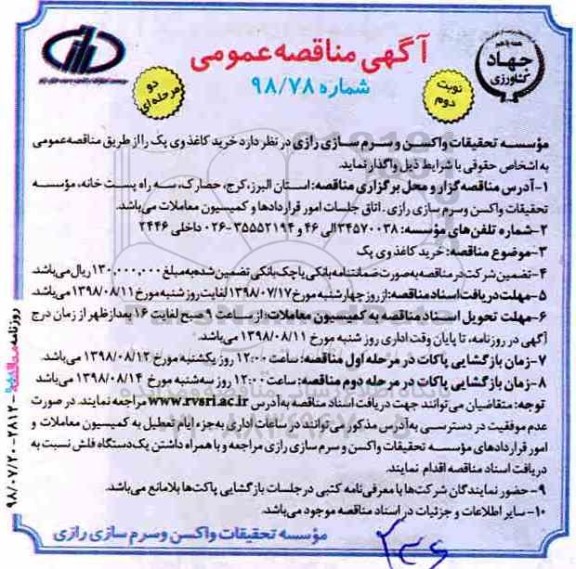 آگهی مناقصه عمومی
شماره ۹۸/۷۸
دو مرحله‌ای
نوبت دوم
جهاد کشاورزی
مؤسسه تحقیقات واکسن و سرم سازی رازی در نظر دارد خرید کاغذ وی پک را از طریق مناقصه عمومی
به اشخاص حقوقی با شرایط ذیل واگذار نماید.
۱-آدرس مناقصه گزار و محل برگزاری مناقصه: استان البرز، کرج، حصارک، سه راه پست خانه، مؤسسه
تحقیقات واکسن وسرم سازی رازی . اتاق جلسات امور قراردادها و کمیسیون معاملات می‌باشد.
۲-شماره تلفن‌های مؤسسه: ۳۴۵۷۰۰۳۸ الی ۴۶ و ۳۵۵۵۲۱۹۴-۰۲۶ داخلی ۲۴۴۶
۳-موضوع مناقصه: خرید کاغذ وی پک
۴-تضمین شرکت در مناقصه به صورت ضمانتنامه بانکی یا چک بانکی تضمین شده به مبلغ ۱۳۰,۰۰۰,۰۰۰ ریال می‌باشد.
۵-مهلت دریافت اسناد مناقصه: از روز چهارشنبه مورخ ۱۳۹۸/۰۷/۱۷ لغایت روز شنبه مورخ ۱۳۹۸/۰۸/۱۱ می‌باشد.
۶-مهلت تحویل اسناد مناقصه به کمیسیون معاملات: از ساعت ۹ صبح لغایت ۱۶ بعدازظهر از زمان درج
آگهی در روزنامه، تا پایان وقت اداری روز شنبه مورخ ۱۳۹۸/۰۸/۱۱ می‌باشد.
۷-زمان بازگشایی پاکات در مرحله اول مناقصه: ساعت ۱۲:۰۰ روز یکشنبه مورخ ۱۳۹۸/۰۸/۱۲ می‌باشد.
۸-زمان بازگشایی پاکات در مرحله دوم مناقصه: ساعت ۱۲:۰۰ روز سه‌شنبه مورخ ۱۳۹۸/۰۸/۱۴ می‌باشد.
توجه: متقاضیان می‌توانند جهت دریافت اسناد مناقصه به آدرس www.rvsri.ac.ir مراجعه نمایند. در صورت
عدم موفقیت در دسترسی به آدرس مذکور می‌توانند در ساعات اداری به‌جزء ایام تعطیل به کمیسیون معاملات و
امور قراردادهای مؤسسه تحقیقات واکسن و سرم سازی رازی مراجعه و با همراه داشتن یک دستگاه فلش نسبت به
دریافت اسناد مناقصه اقدام نمایند.
۹-حضور نمایندگان شرکت‌ها با معرفی نامه کتبی در جلسات بازگشایی پاکت‌ها بلامانع می‌باشد.
۱۰-سایر اطلاعات و جزئیات در اسناد مناقصه موجود می‌باشد.
مؤسسه تحقیقات واکسن وسرم سازی رازی
روزنامه ۲۸۱۲-۹۸/۰۷/۲۰
۲۳۶